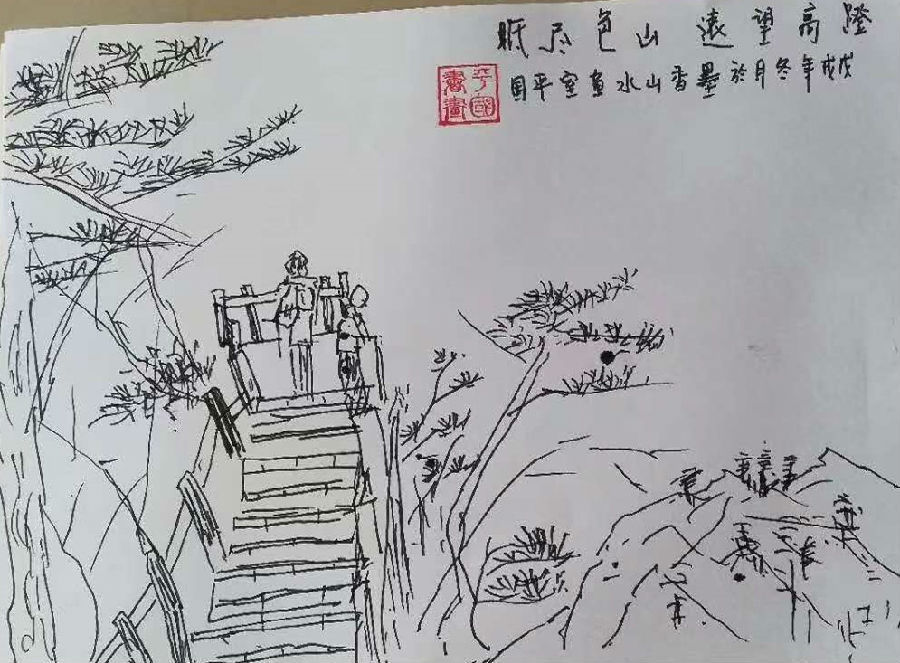 高望遠山色尽
戊戌年冬月於墨香山水畫室平国
平國書畫